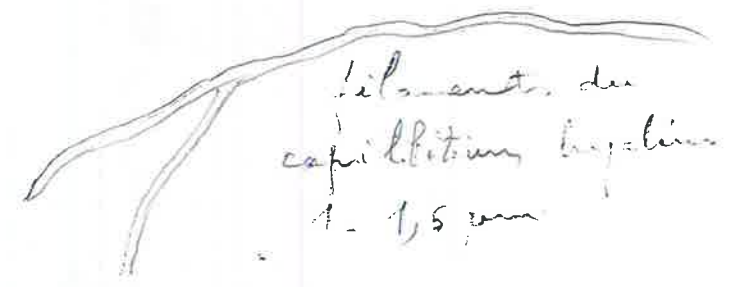 filaments du
capillitium hyalins
1-1,5 µm